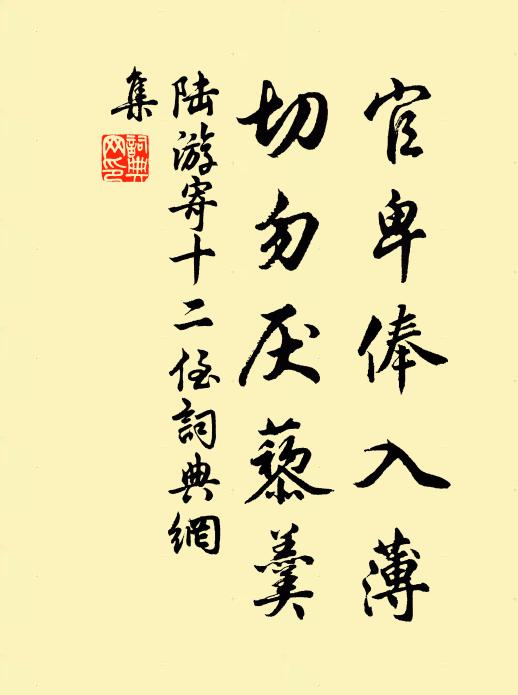 官卑俸入薄
切勿厌藜羹
陆游寄十二侄詞典網
集
詞典网印